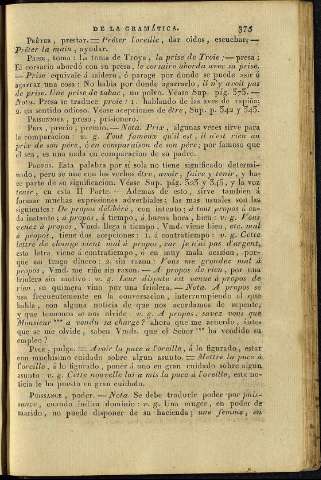 DE LA GRAMÁTICA. 375
Prêter, prestar. = Prêter l'oreille, dar oidos, escuchar; =
Prêter la main, ayudar.
Prise, toma: la toma de Troya, la prise de Troie; = presa:
El corsario abordó con su presa, le corsaire aborda avec sa prise.
= Prise equivale á asidero, ó parage por donde se puede asir ó
agarrar una cosa: No habia por donde agarrarlo, il n'y avoit pas
de prise. Une prise de tabac, un polvo. Véase Sup. pág. 373. =
Nota. Presa se traduce proie: 1. hablando de las aves de rapiña;
2. en sentido odioso. Véase acepciones de être, Sup. p. 342 y 343.
Prisonnier, preso, prisionero.
Prix, precio; premio. — Nota. Prix, algunas veces sirve para
la comparacion: v. g. Tout fameux qu'il est, il n'est rien au
prix de son père, ó en comparaison de son père; por famoso que
él sea, es una nada en comparacion de su padre.
Propos. Esta palabra por sí sola no tiene significado determi-
nado, pero se une con los verbos être, avoir, faire y tenir, y ha-
ce parte de su significacion. Véase Sup. pág. 323 y 345, y la voz
tenir, en esta II Parte. — Ademas de esto, sirve tambien á
formar muchas expresiones adverbiales: las mas usuales son las
siguientes: De propos délibéré, con intento; á tout propos á ca-
da instante; à propos, á tiempo, á buena hora, bien: v. g. Vous
venez à propos, Vmd. llega á tiempo, Vmd. viene bien, etc. mal
à propos, tiene dos acepciones: 1. á contratiempo: v. g. Cette
lettre de change vient mal à propos, car je n'ai pas d'argent,
esta letra viene á contratiempo, ó en muy mala ocasion, por-
que no tengo dinero: 2. sin razon: Vous me grondez mal à
propos, Vmd. me riñe sin razon. — A propos de rien, por una
friolera sin motivo: v. g. Leur dispute est venue à propos de
rien, se quimera vino por una friolera. — Nota. A propos se
usa frecuentemente en la conversacion, interrumpiendo al que
habla, con alguna noticia de que nos acordamos de repente,
y que tememos se nos olvide: v. g. A propos, savez vous que
Monsieur *** a vendu sa charge? ahora que me acuerdo, ántes
que se me olvide, sabeu Vmds. que el Señor *** ha vendido su
empleo?
Puce, pulga. = Avoir la puce à l'oreille, á lo figurado, estar
con muchísimo cuidado sobre algun asunto. = Mettre la puce à
l'oreille, á lo figurado, poner á uno en cuidado sobre algun
asunto: v. g. Cette nouvelle lui a mis la puce à l'oreille, esta no-
ticia le ha puesto en gran cuidado.
Puissance, poder. — Nota. Se debe traducir poder por puis-
sance, cuando indica dominio: v. g. Una muger, en poder de
marido, no puede disponer de su hacienda; une femme, en